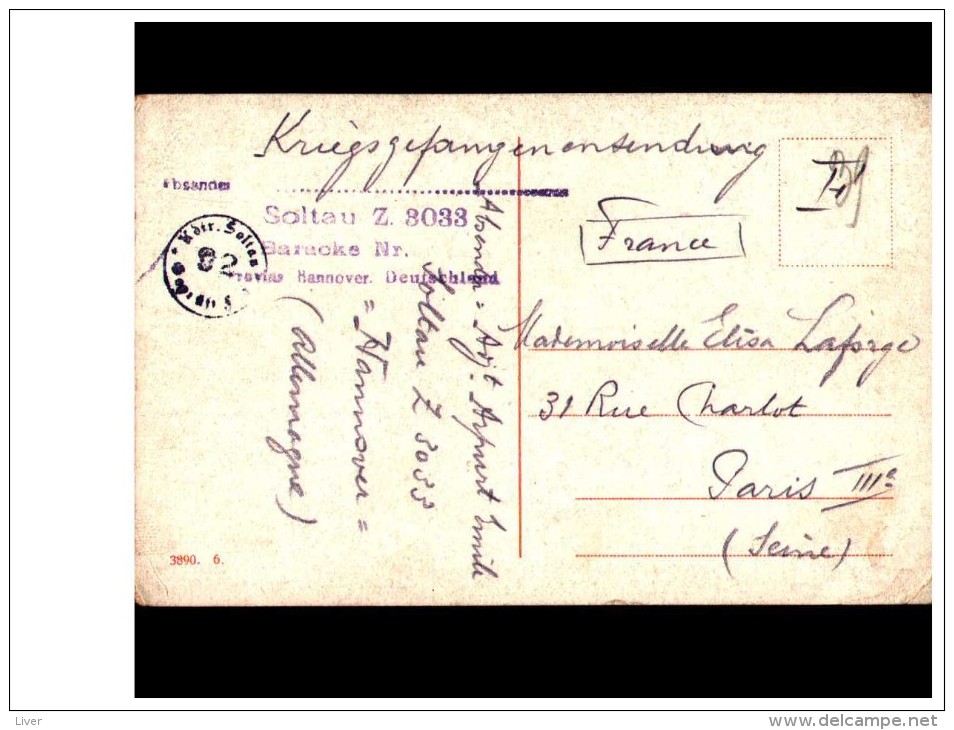 Kriegsgefangenensendung
Absender
Soltau Z. 3033
Baracke Nr.
Hannover. Deutschland
Kdtr. Soltau
92
Geprüft
France
Mademoiselle Elisa Laforge
31 Rue Charlot
Paris IIIe
(Seine)
Absender = Adjt. Emile
Soltau Z 3033
= Hannover =
(Allemagne)
3890. 6.
Liver
www.delcampe.net